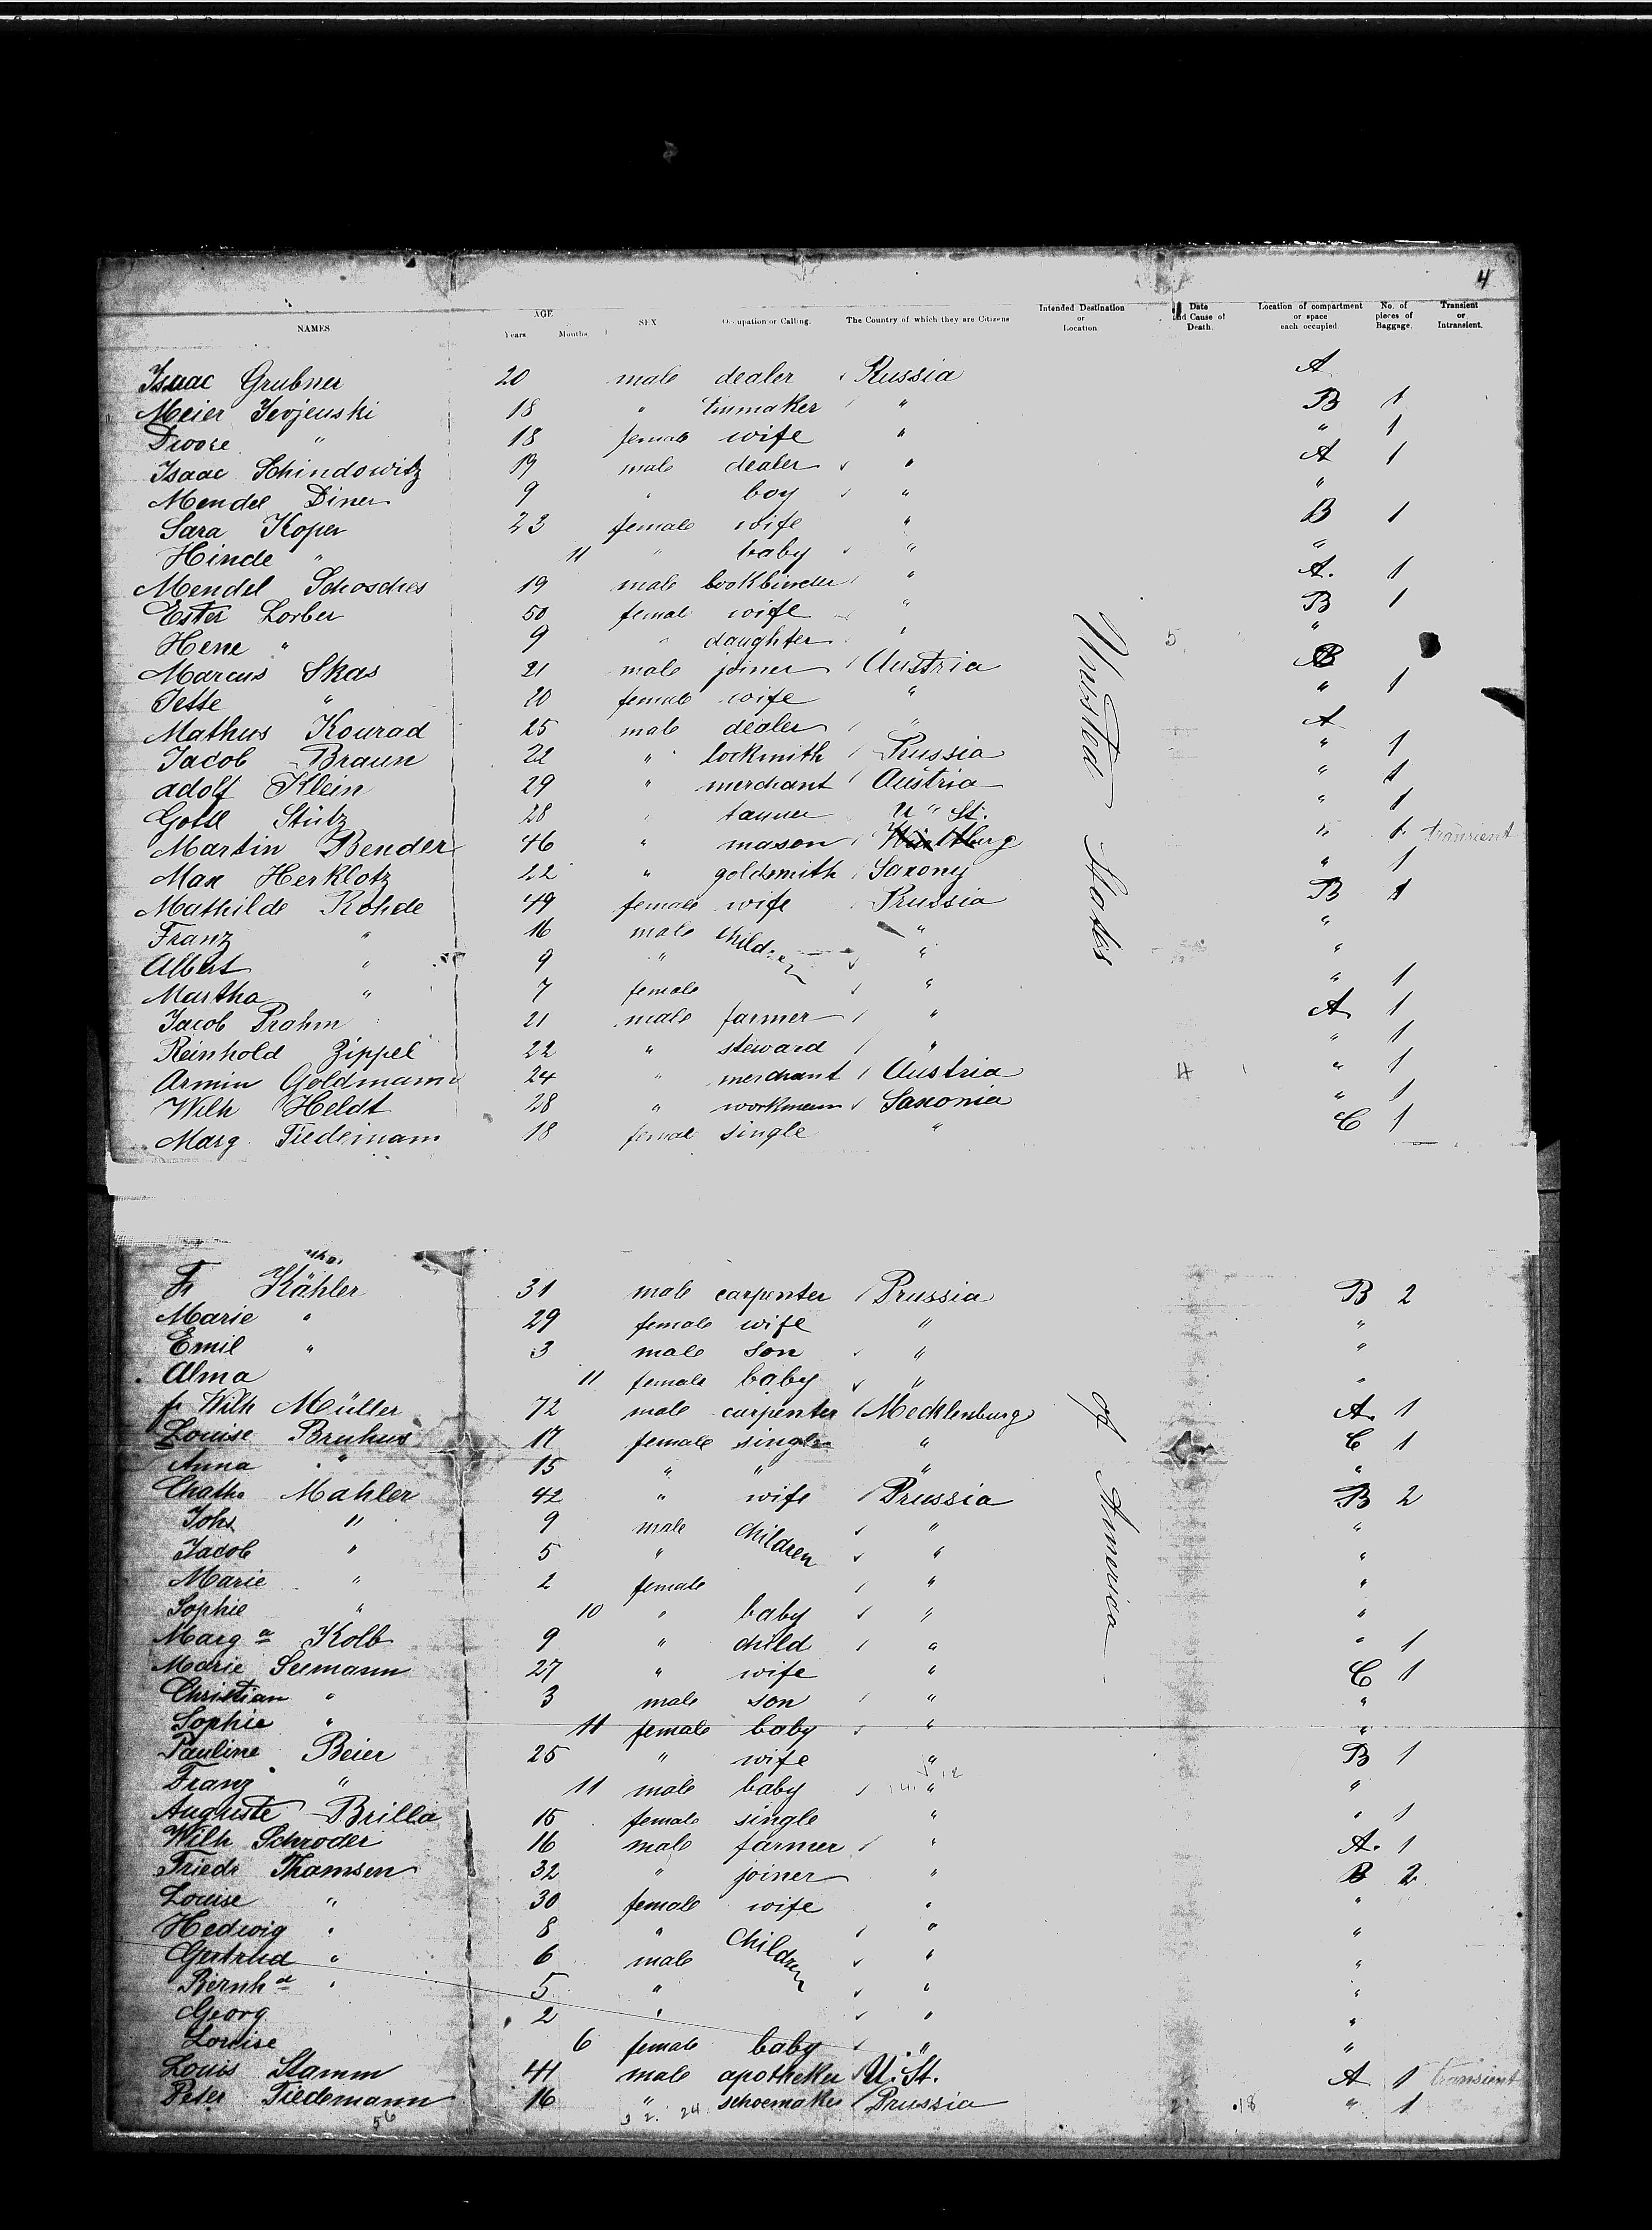 4
NAMES AGE Years. Months SEX Occupation or Calling. The Country of which they are Citizens Intended Destination or Location. Date and Cause of Death. Location of compartment or space each occupied. No. of pieces of Baggage. Transient or Intransient.
Isaac Grubner 20 male dealer Russia A
Meier Jevjenski 18 " tinmaker " B 1
Dwore " 18 female wife " " 1
Isaac Schindowitz 19 male dealer " A 1
Mendel Diner 9 " boy " "
Sara Koper 23 female wife " B 1
Hinde " 11 " baby " "
Mendel Schosches 19 male bookbinder " A. 1
Ester Lorber 50 female wife " B 1
Hene " 9 " daughter " 5 "
Marcus Skas 21 male joiner Austria B
Jette " 20 female wife " " 1
Mathus Konrad 25 male dealer " A
Jacob Braun 22 " lockmith Prussia " 1
Adolf Klein 29 " merchant Austria " 1
Gottl Stütz 28 " tanner " " 1
Martin Bender 46 " mason U. St. " 1 transient
Max Herklotz 22 " goldsmith Saxony " 1
Mathilde Rohde 49 female wife Prussia B 1
Franz " 16 male children " "
Albert " 9 " " "
Martha " 7 female " " 1
Jacob Prahm 21 male farmer " A 1
Reinhold Zippel 22 " steward " " 1
Armin Goldmann 24 " merchant Austria " 1
Wilh Heldt 28 " workman Saxonia " 1
Marg. Tiedemann 18 female single " C 1
United States
Fr Kähler 31 male carpenter Prussia B 2
Marie " 29 female wife " "
Emil " 3 male son " "
Alma 11 female baby " "
fr Wilh Müller 72 male carpenter Mecklenburg A. 1
Louise Bruhns 17 female single " C 1
Anna " 15 " " " "
Cath. Mahler 42 " wife Prussia B 2
Johs " 9 male children " "
Jacob " 5 " " "
Marie " 2 female " "
Sophie " 10 " baby " "
Marga Kolb 9 " child " " 1
Marie Seemann 27 " wife " C 1
Christian " 3 male son " "
Sophie " 11 female baby " "
Pauline Beier 25 " wife " B 1
Franz " 11 male baby " "
Auguste Brilla 15 female single " " 1
Wilh Schroder 16 male farmer " A. 1
Friedr Thamsen 32 " joiner " B 2
Louise " 30 female wife " "
Hedwig " 8 " children " "
Gertrud " 6 male " "
Bernhd " 5 " " "
Georg 2 " " "
Louise 6 female baby " "
Louis Stamm 41 male apotheker U. St. A 1 transient
Peter Tiedemann 16 " schoemaker Prussia " 1
of America
56